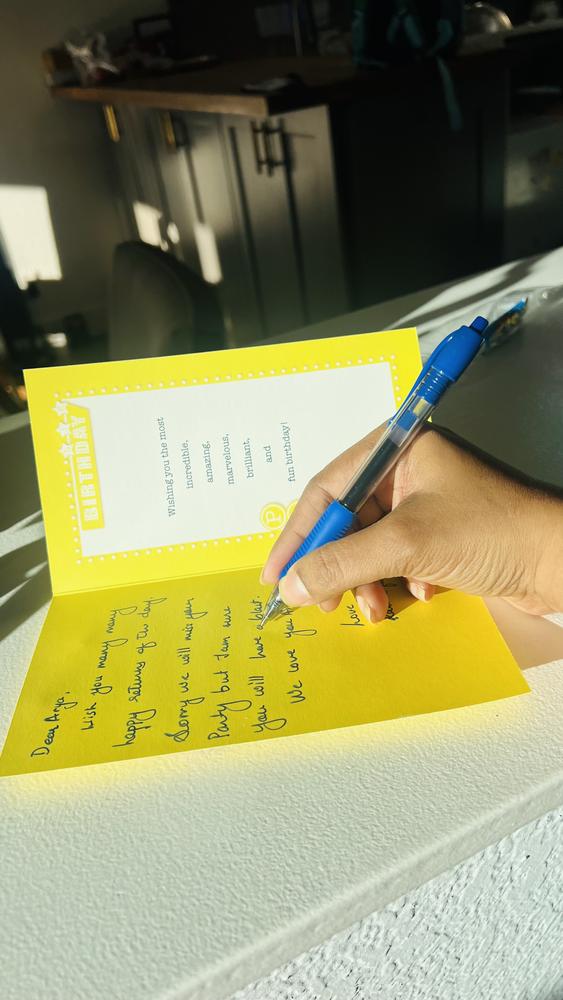 BIRTHDAY
Wishing you the most
incredible,
amazing,
marvelous,
brilliant,
and
fun birthday!
P
Dear Arya,
Wish you many many
happy returns of the day.
Sorry we will miss your
Party but I am sure
you will have a blast.
We love you
love